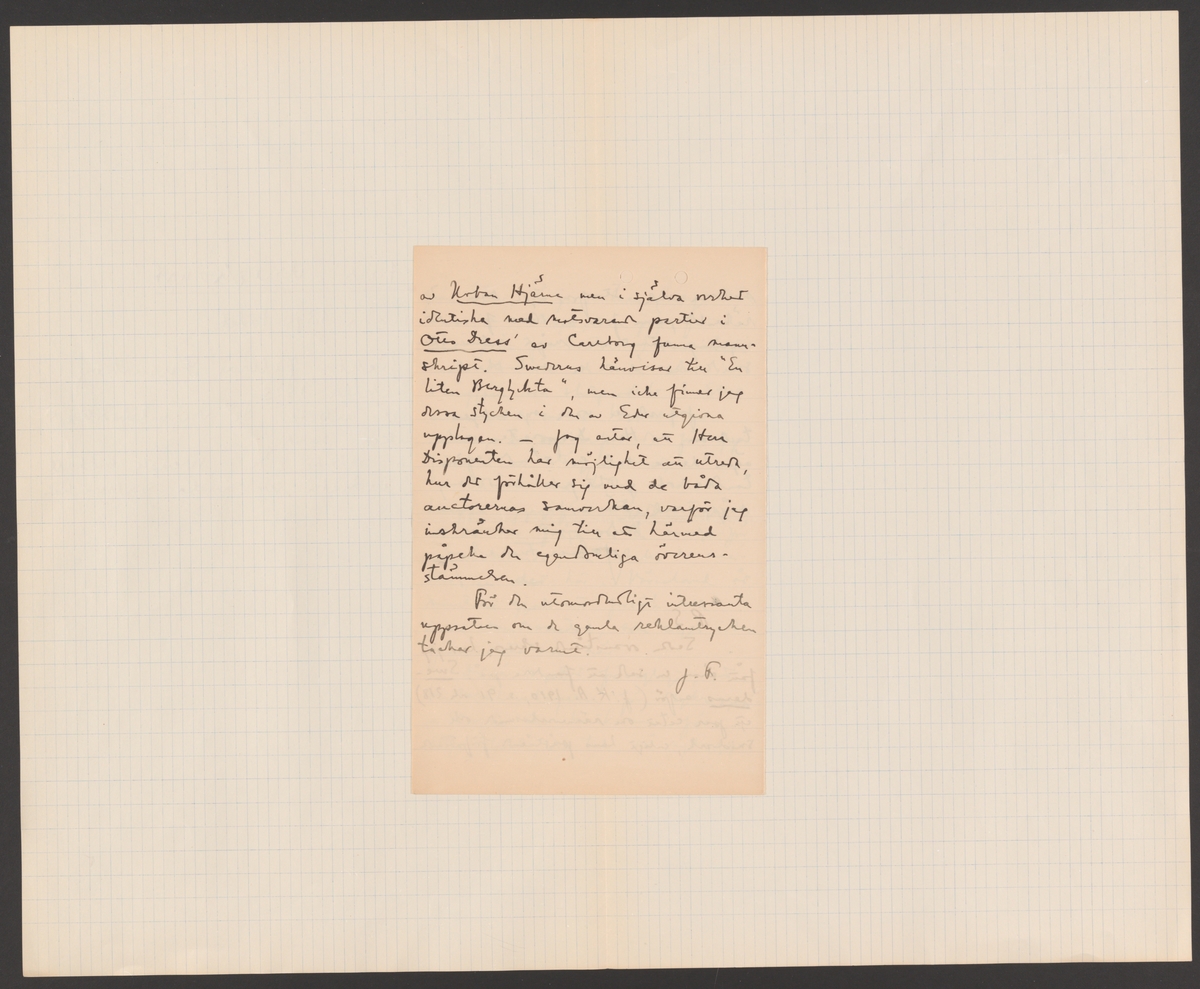 av Urban Hjärne men i själva verket
identiska med motsvarande partier i
Otto Dress' av Carlborg funna manu-
skript. Swederus hänvisar till "En
liten Berglykta", men icke finner jag
dessa stycken i den av Eder utgivna
upplagan. — Jag antar, att Herr
Disponenten har möjlighet att utreda,
hur det förhåller sig med de båda
auctorernas samverkan, varför jag
inskränker mig till att härmed
påpeka den egendomliga överens-
stämmelsen.
För den utomordentligt intressanta
uppsatsen om de gamla reklamtrycken
tackar jag varmt.
J. F.